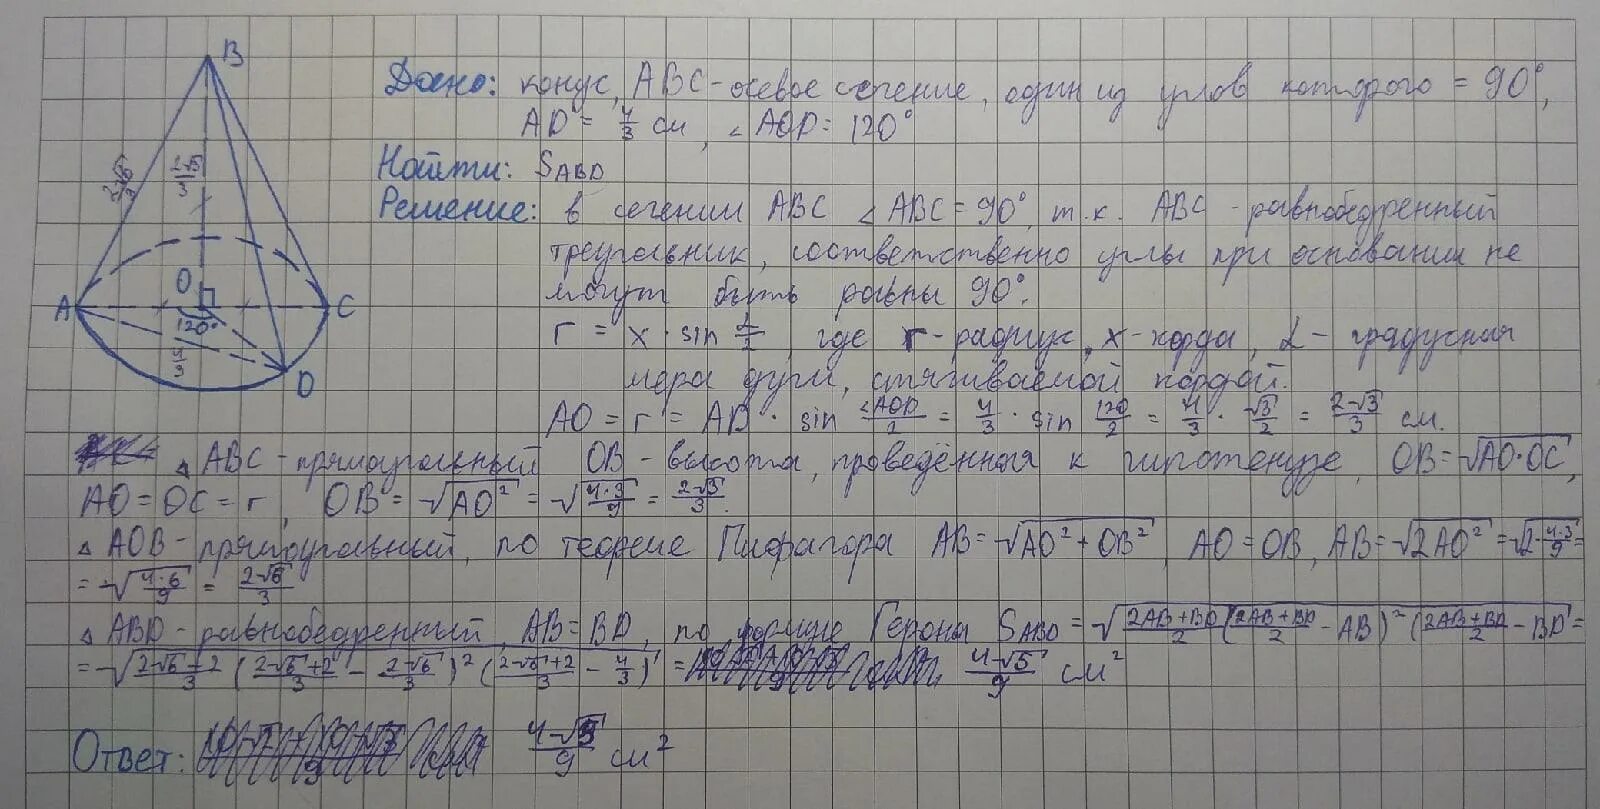 B
Дано: конус, ABC - осевое сечение, один из углов которого = 90°,
AD = 4/3 см, ∠AOD = 120°
Найти: S_ABD
Решение: в сечении ABC ∠ABC = 90°, т.к. ABC - равнобедренный
треугольник, соответственно углы при основании не
могут быть равны 90°.
r = x · sin α/2, где r - радиус, x - хорда, α - градусная
мера дуги, стягиваемой хордой.
AO = r = AB · sin ∠AOD/2 = 4/3 · sin 120/2 = 4/3 · √3/2 = 2√3/3 см.
2√6/3
2√3/3
O
A
C
120°
4/3
D
△ABC - прямоугольный OB - высота, проведённая к гипотенузе, OB = √(AO·OC),
AO = OC = r, OB = √(AO²) = √(4·3/9) = 2√3/3.
△AOB - прямоугольный, по теореме Пифагора AB = √(AO² + OB²), AO = OB, AB = √(2AO²) = √(2·4·3/9) =
= √(4·6/9) = 2√6/3
△ABD - равнобедренный, AB = BD, по формуле Герона S_ABD = √((2AB+BD)/2 ((2AB+BD)/2 - AB)² ((2AB+BD)/2 - BD) =
= √((2√6+2)/3 ((2√6+2)/3 - 2√6/3)² ((2√6+2)/3 - 4/3)) = 4√5/9 см²
Ответ: 4√5/9 см²